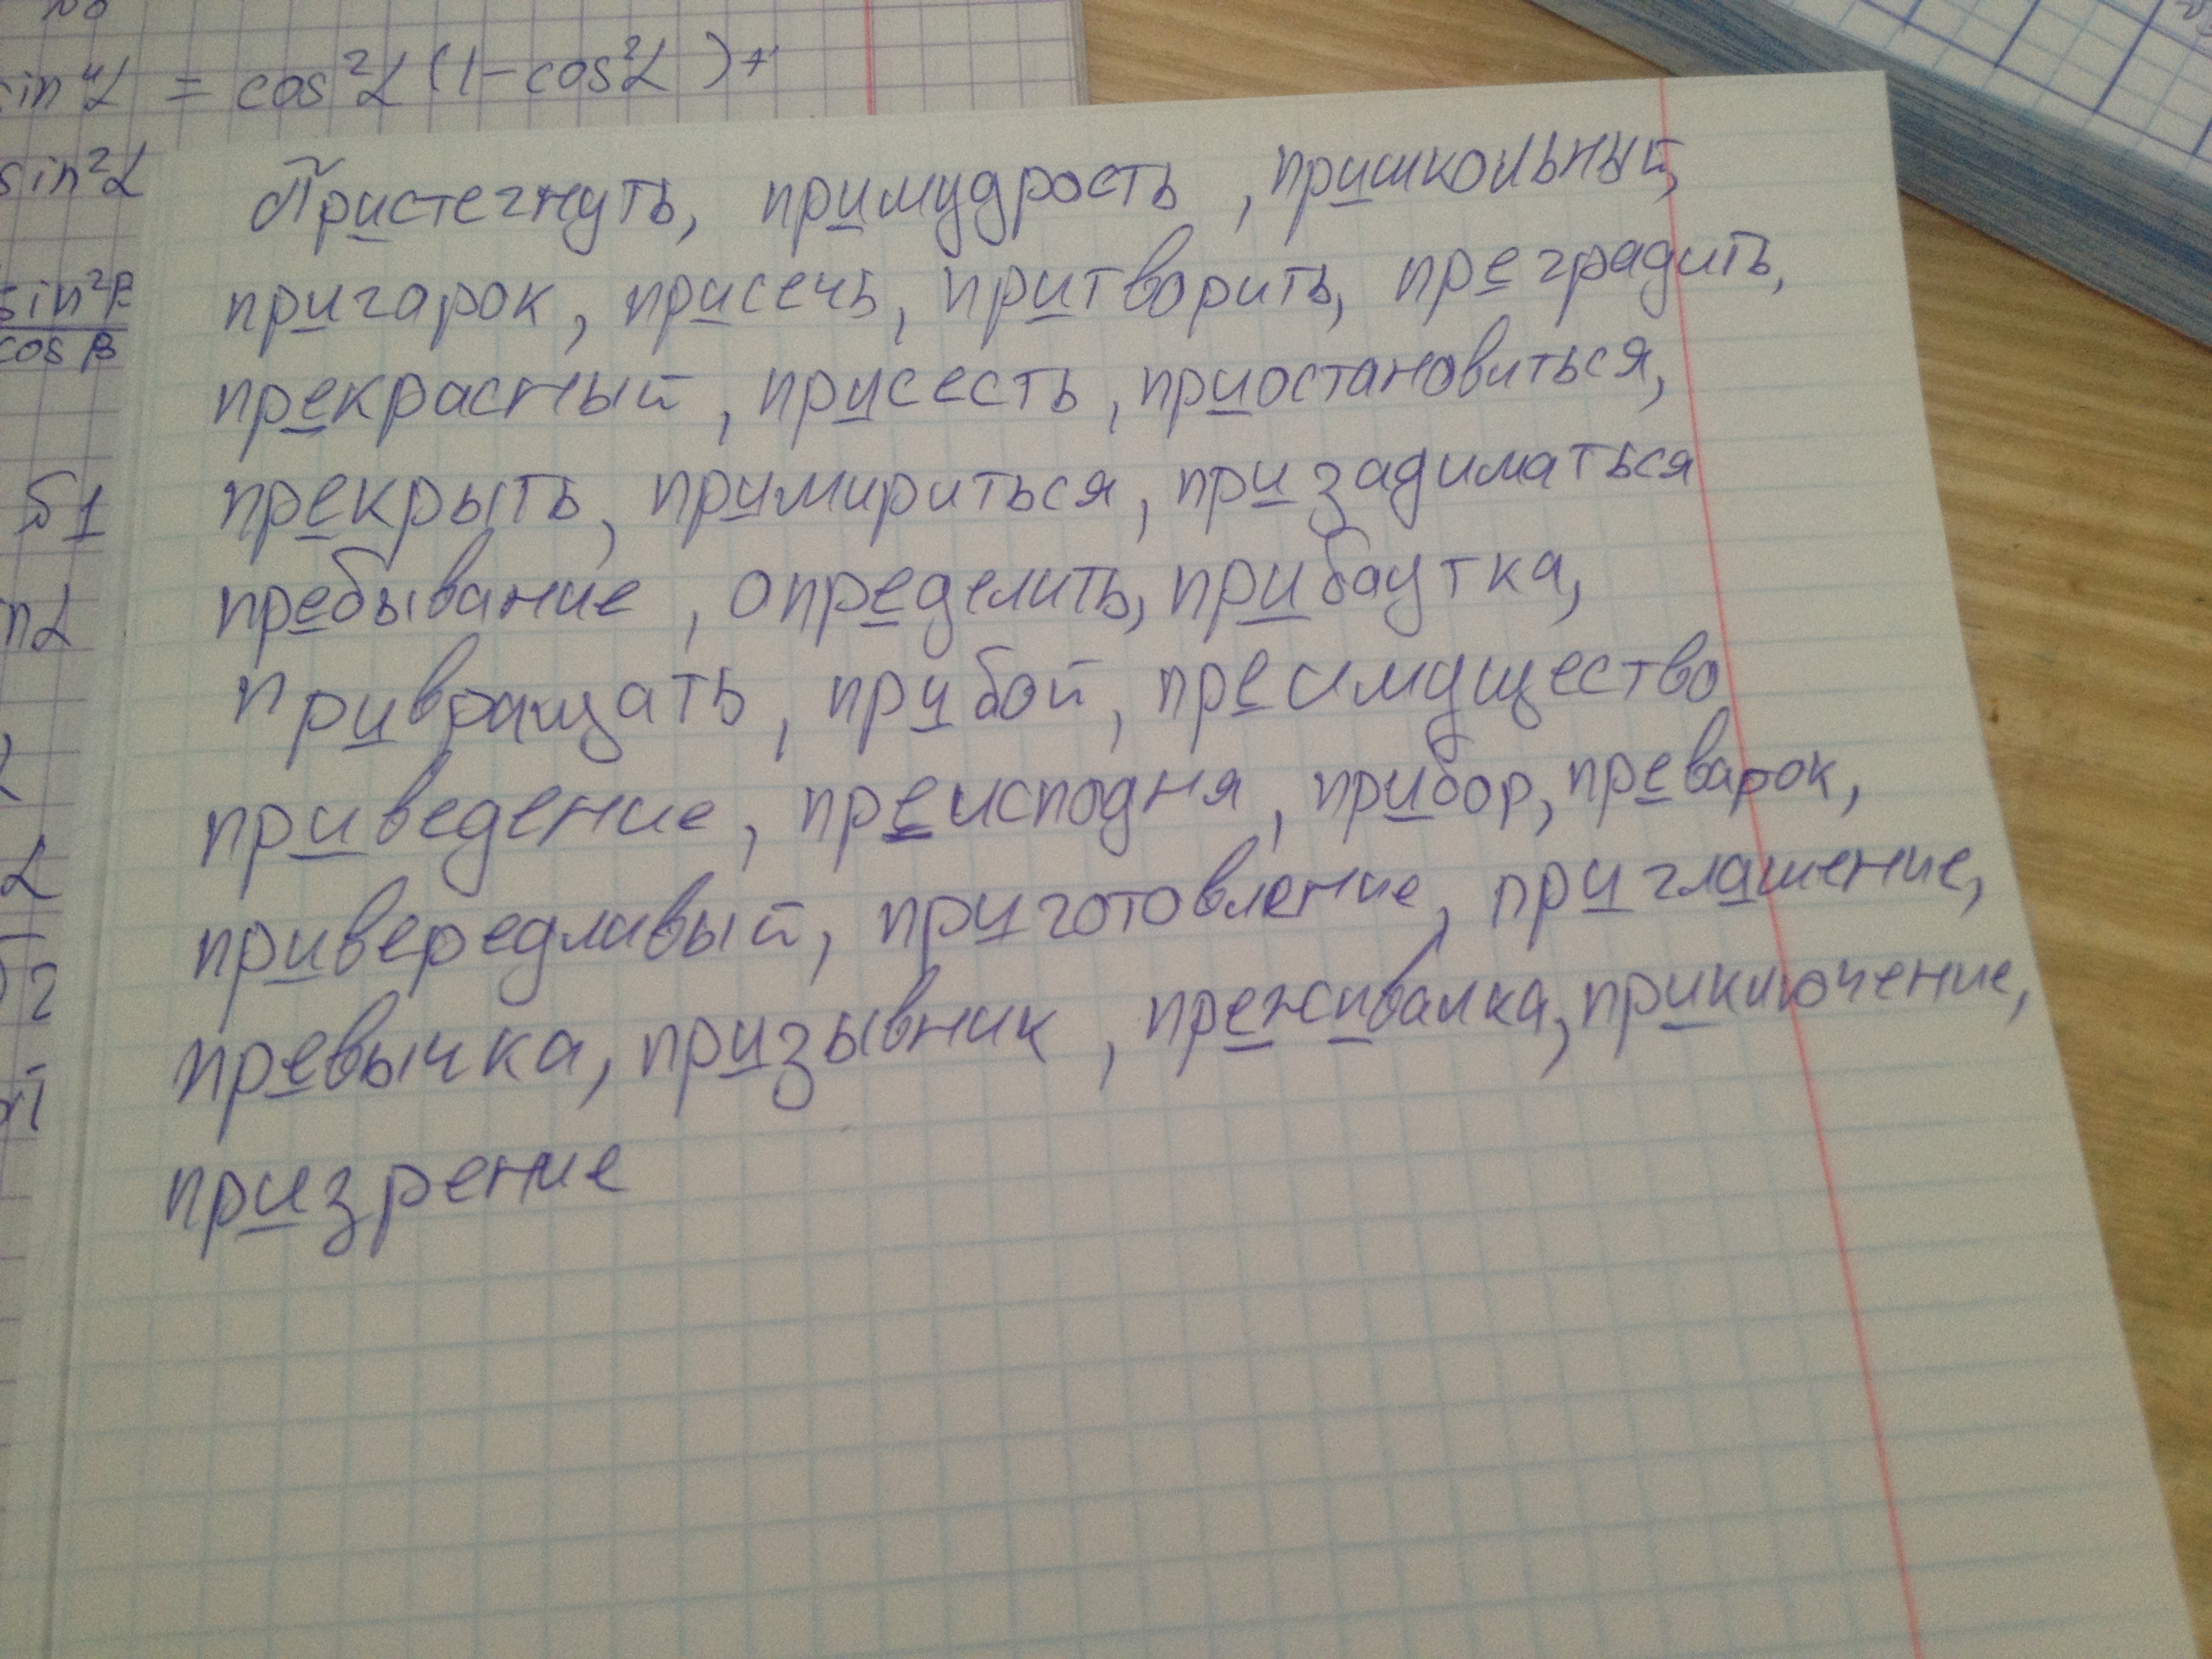 sin⁴α = cos²α(1-cos²α)+
sin²α
sin²β
cos β
б1
nα
α
Пристегнуть, примудрость, пришкольный,
пригарок, присечь, притворить, преградить,
прекрасный, присесть, приостановиться,
прекрыть, примириться, призадиматься
пребывание, определить, прибаутка,
привращать, прибой, преимущество
приведение, преисподня, прибор, преварок,
привередливый, приготовление, приглашение,
превычка, призывник, преживалка, приключение,
призрение